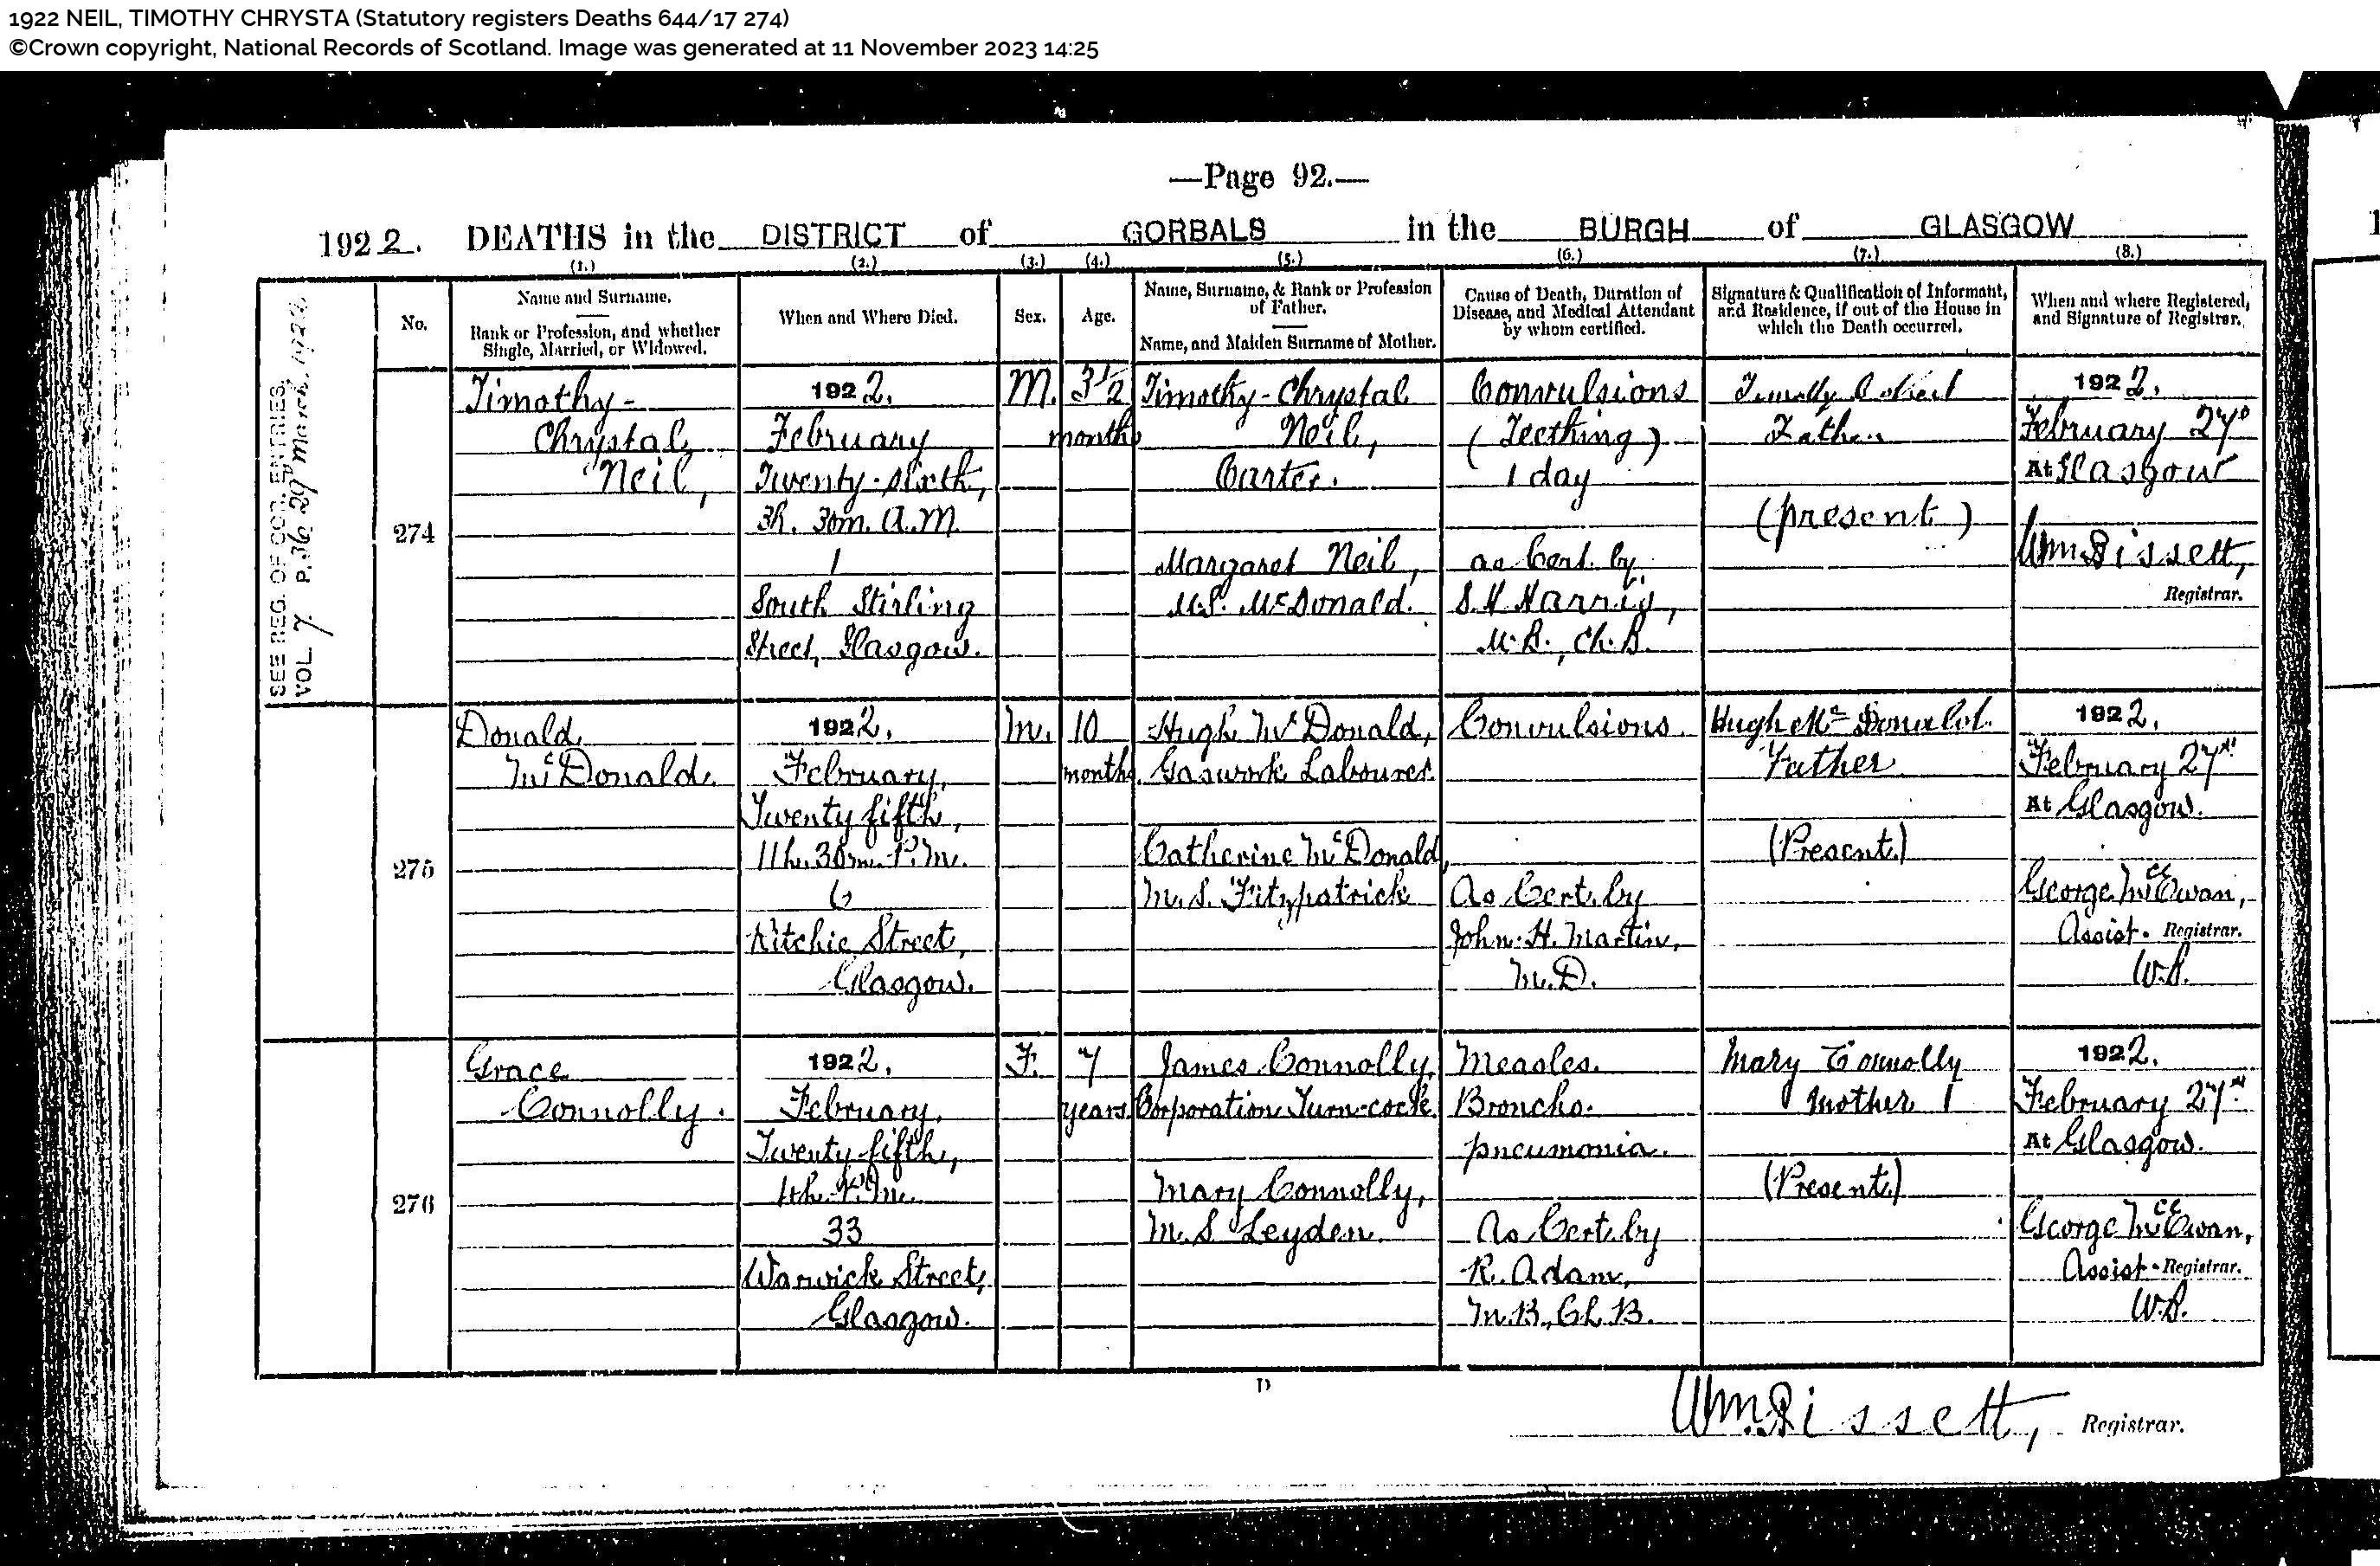 1922 NEIL, TIMOTHY CHRYSTA (Statutory registers Deaths 644/17 274)
©Crown copyright, National Records of Scotland. Image was generated at 11 November 2023 14:25
—Page 92.—
1922. DEATHS in the DISTRICT of GORBALS in the BURGH of GLASGOW
(1.) (2.) (3.) (4.) (5.) (6.) (7.) (8.)
No.
Name and Surname.
Rank or Profession, and whether
Single, Married, or Widowed.
When and Where Died.
Sex.
Age.
Name, Surname, & Rank or Profession
of Father.
Name, and Maiden Surname of Mother.
Cause of Death, Duration of
Disease, and Medical Attendant
by whom certified.
Signature & Qualification of Informant,
and Residence, if out of the House in
which the Death occurred.
When and where Registered,
and Signature of Registrar.
SEE REG. OF COR. ENTRIES,
VOL. 7 P. 39 March, 1922
274
Timothy-
Chrystal
Neil,
1922.
February
Twenty-sixth,
3h. 30m. A.M.
1
South Stirling
Street, Glasgow.
M.
3½
months
Timothy-Chrystal
Neil,
Carter.
Margaret Neil,
M.S. McDonald.
Convulsions
(Teething)
1 day
as Cert. by
S. H. Harris,
M.B., Ch.B.
Timothy C Neil
Father
(present)
1922.
February 27th
At Glasgow
Wm. Bissett,
Registrar.
275
Donald
McDonald.
1922.
February,
Twenty fifth,
11h. 30m. P.M.
6
Ritchie Street,
Glasgow.
M.
10
months.
Hugh McDonald,
Gaswork Labourer.
Catherine McDonald,
M.S. Fitzpatrick
Convulsions.
As Cert. by
John. H. Martin,
M.D.
Hugh McDonald.
Father
(Present.)
1922.
February 27th
At Glasgow.
George McEwan,
Assist. Registrar.
W.B.
276
Grace
Connolly.
1922.
February,
Twenty fifth,
P.M.
33
Warwick Street,
Glasgow.
F.
7
years.
James Connolly,
Corporation Turn-cock
Mary Connolly,
M.S Leyden.
Measles.
Broncho-
pneumonia.
As Cert. by
R. Adam,
M.B., Ch. B.
Mary Connolly
Mother
(Present)
1922.
February 27th
At Glasgow.
George McEwan,
Assist. Registrar.
W.B.
Wm. Bissett, Registrar.